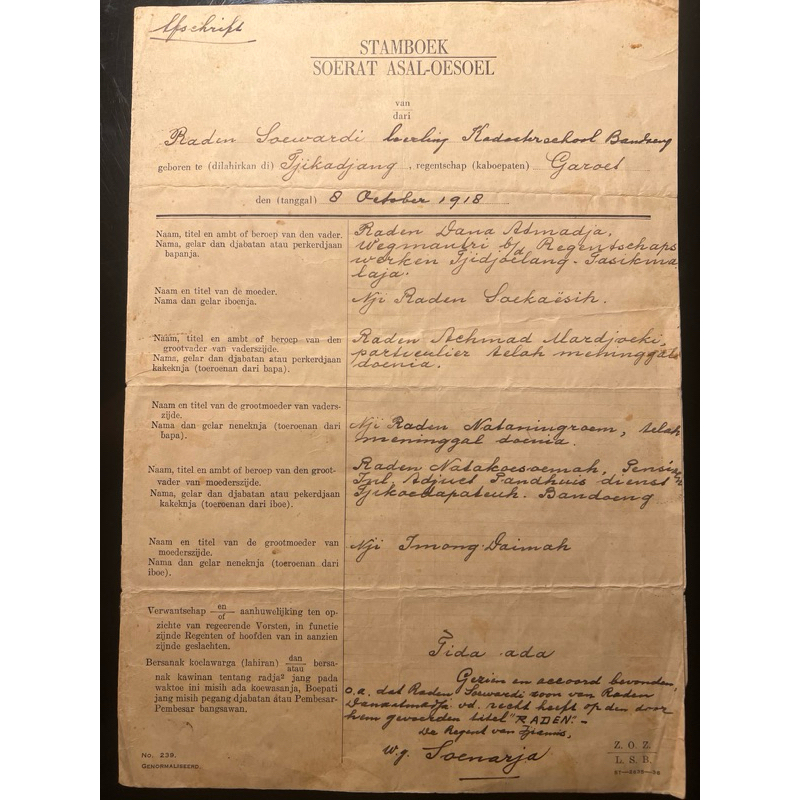 Afschrift
STAMBOEK
SOERAT ASAL-OESOEL
van
dari
Raden Soewardi leerling Kadasterschool Bandoeng
geboren te (dilahirkan di) Tjikadjang, regentschap (kaboepaten) Garoet
den (tanggal) 8 October 1918
Naam, titel en ambt of beroep van den vader.
Nama, gelar dan djabatan atau perkerdjaan
bapanja.
Raden Dana Atmadja,
Wegmantri b/d Regentschaps
werken Tjidjoelang-Tasikma
laja.
Naam en titel van de moeder.
Nama dan gelar iboenja.
Nji Raden Soekaësih.
Naam, titel en ambt of beroep van den
grootvader van vaderszijde.
Nama, gelar dan djabatan atau perkerdjaan
kakeknja (toeroenan dari bapa).
Raden Achmad Mardjoeki,
particulier telah meninggal
doenia.
Naam en titel van de grootmoeder van vaders-
zijde.
Nama dan gelar neneknja (toeroenan dari
bapa).
Nji Raden Nataningroem, telah
meninggal doenia.
Naam, titel en ambt of beroep van den groot-
vader van moederszijde.
Nama, gelar dan djabatan atau pekerdjaan
kakeknja (toeroenan dari iboe).
Raden Natakoesoemah,
Inl. Adjuct Pandhuis dienst
Tjikoedapateuh. Bandoeng
Naam en titel van de grootmoeder van
moederszijde.
Nama dan gelar neneknja (toeroenan dari
iboe).
Nji Imong Daimah
Verwantschap en/of aanhuwelijking ten op-
zichte van regeerende Vorsten, in functie
zijnde Regenten of hoofden van in aanzien
zijnde geslachten.
Bersanak koelawarga (lahiran) dan/atau bersa-
nak kawinan tentang radja² jang pada
waktoe ini misih ada kowasanja, Boepati
jang misih pegang djabatan átau Pembesar-
Pembesar bangsawan.
Tida ada
Gezien en accoord bevonden,
o.a. dat Raden Soewardi zoon van Raden
Danaatmadja vd. recht heeft op den door
hem gevoerden titel "RADEN".-
De Regent van Tjiamis,
w.g. Soenarja
No. 239.
GENORMALISEERD.
Z. O. Z.
L. S. B.